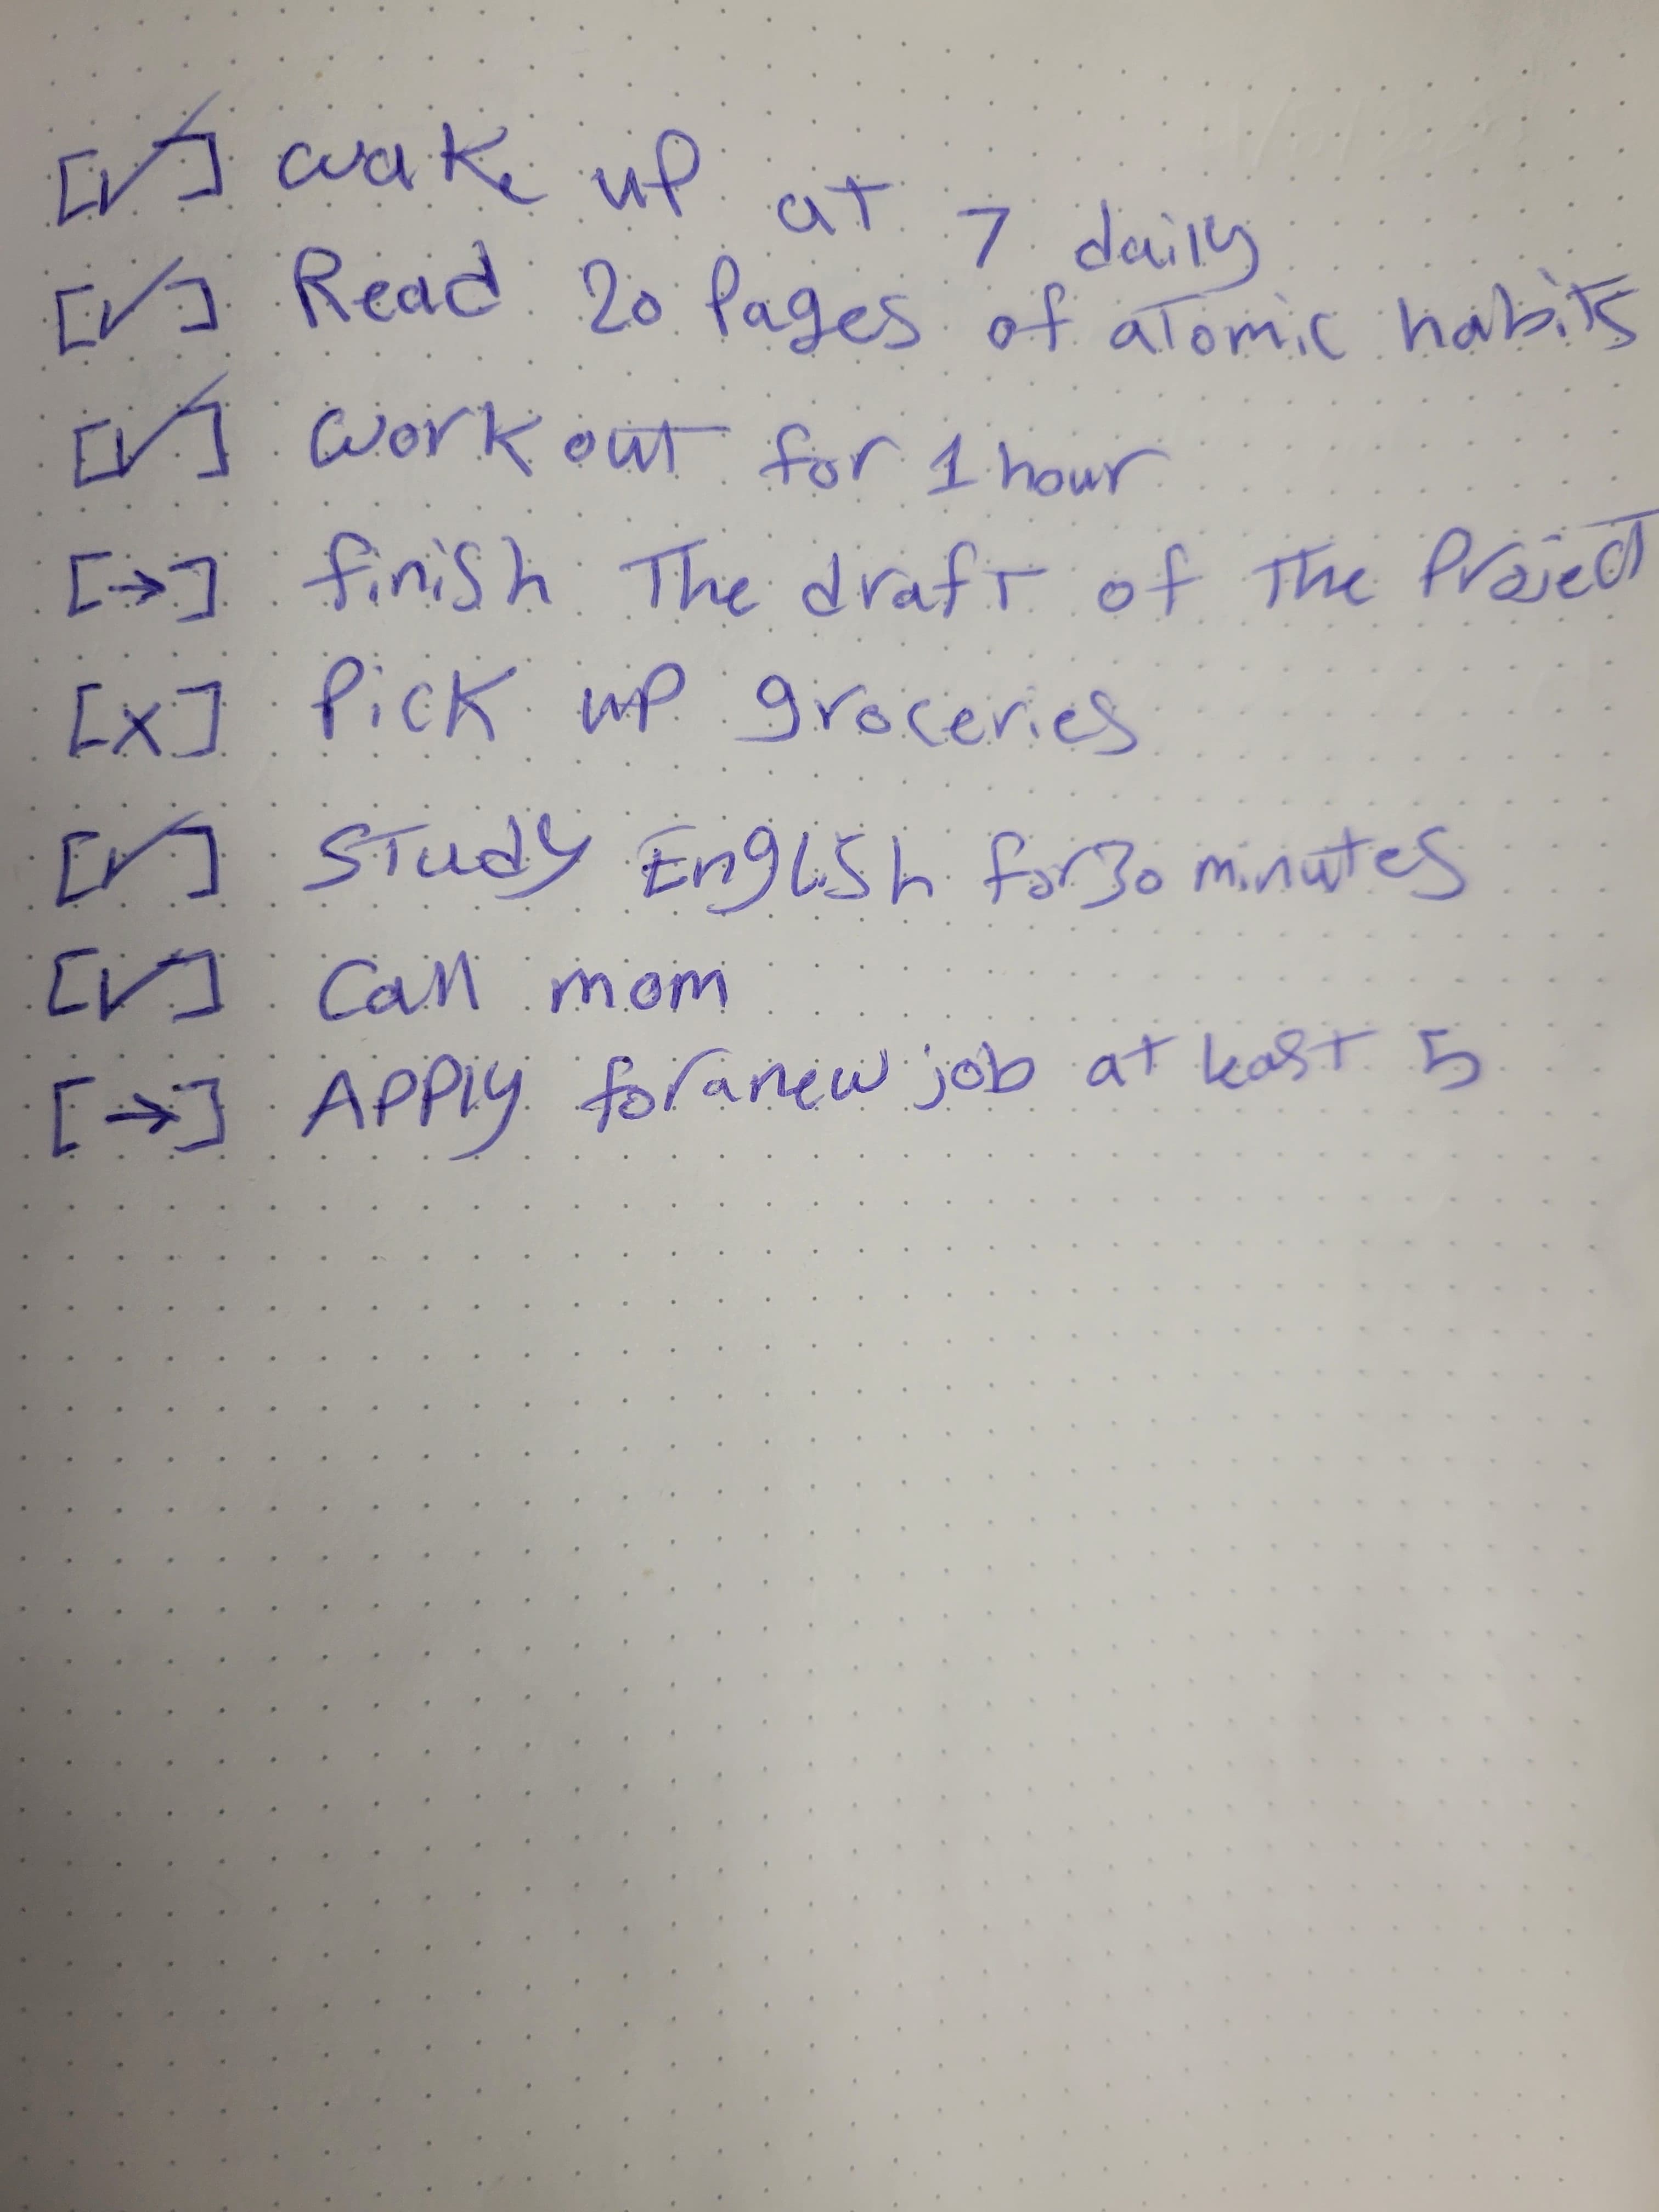 [✓] wake up at 7 daily
[✓] Read 20 Pages of atomic habits
[✓] work out for 1 hour
[→] finish The draft of The Project
[x] Pick up groceries
[✓] Study English for 30 minutes
[✓] Call mom
[→] Apply for a new job at least 5